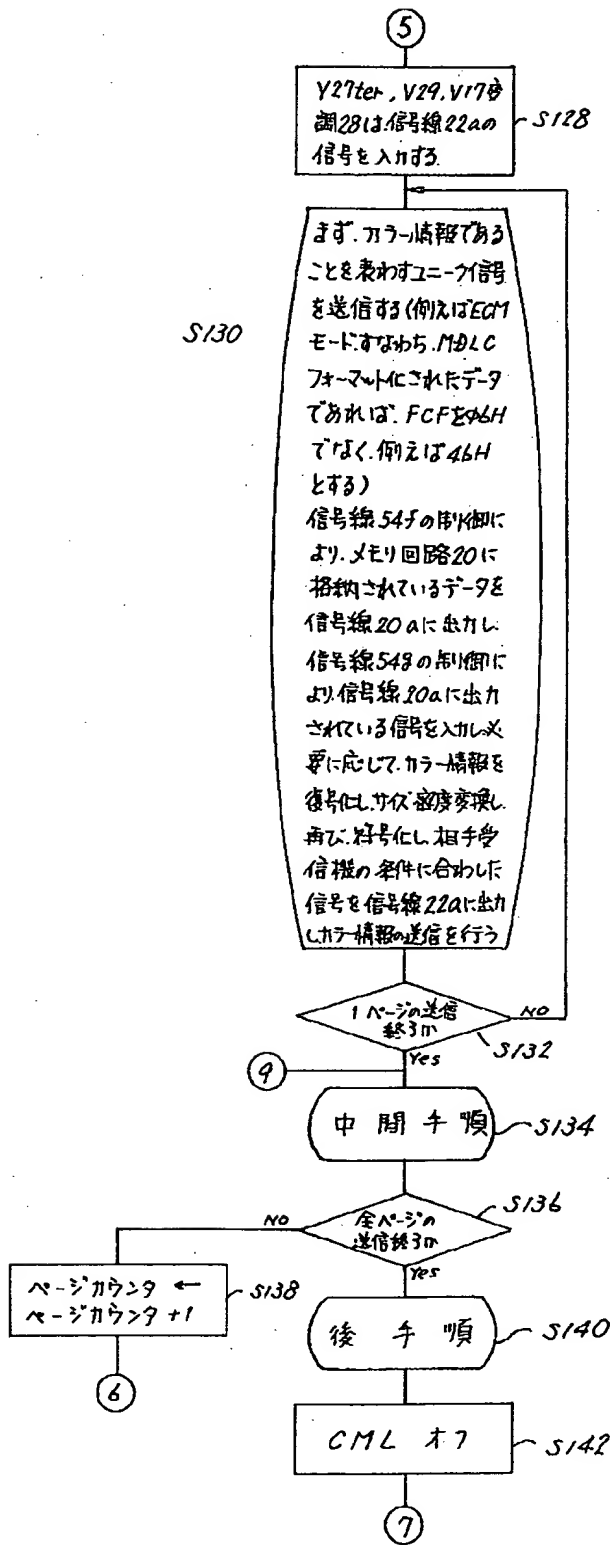 5
V27ter, V29, V17変
調28は信号線22aの
信号を入力する
S128
まず、カラー情報である
ことを表わすユニーク信号
を送信する(例えばECM
モード、すなわち、MDLC
フォーマット化されたデータ
であれば、FCFをφ6H
でなく、例えば46H
とする)
信号線54fの制御に
より、メモリ回路20に
格納されているデータを
信号線20aに出力し
信号線54gの制御に
より、信号線20aに出力
されている信号を入力し、必
要に応じて、カラー情報を
復号化し、サイズ密度変換し
再び、符号化し、相手受
信機の条件に合わした
信号を信号線22aに出力
し、カラー情報の送信を行う
S130
1ページの送信
終了か
NO
S132
Yes
9
中間手順
S134
S136
全ページの
送信終了か
NO
Yes
ページカウンタ ←
ページカウンタ +1
S138
6
後手順
S140
CML オフ
S142
7